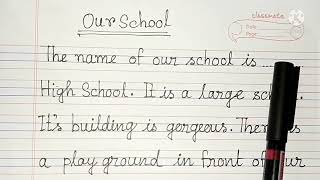 Our School
classmate
Date
Page
The name of our school is ....
High School. It is a large sc
It's building is gergeeus. The is
a play ground in front of our